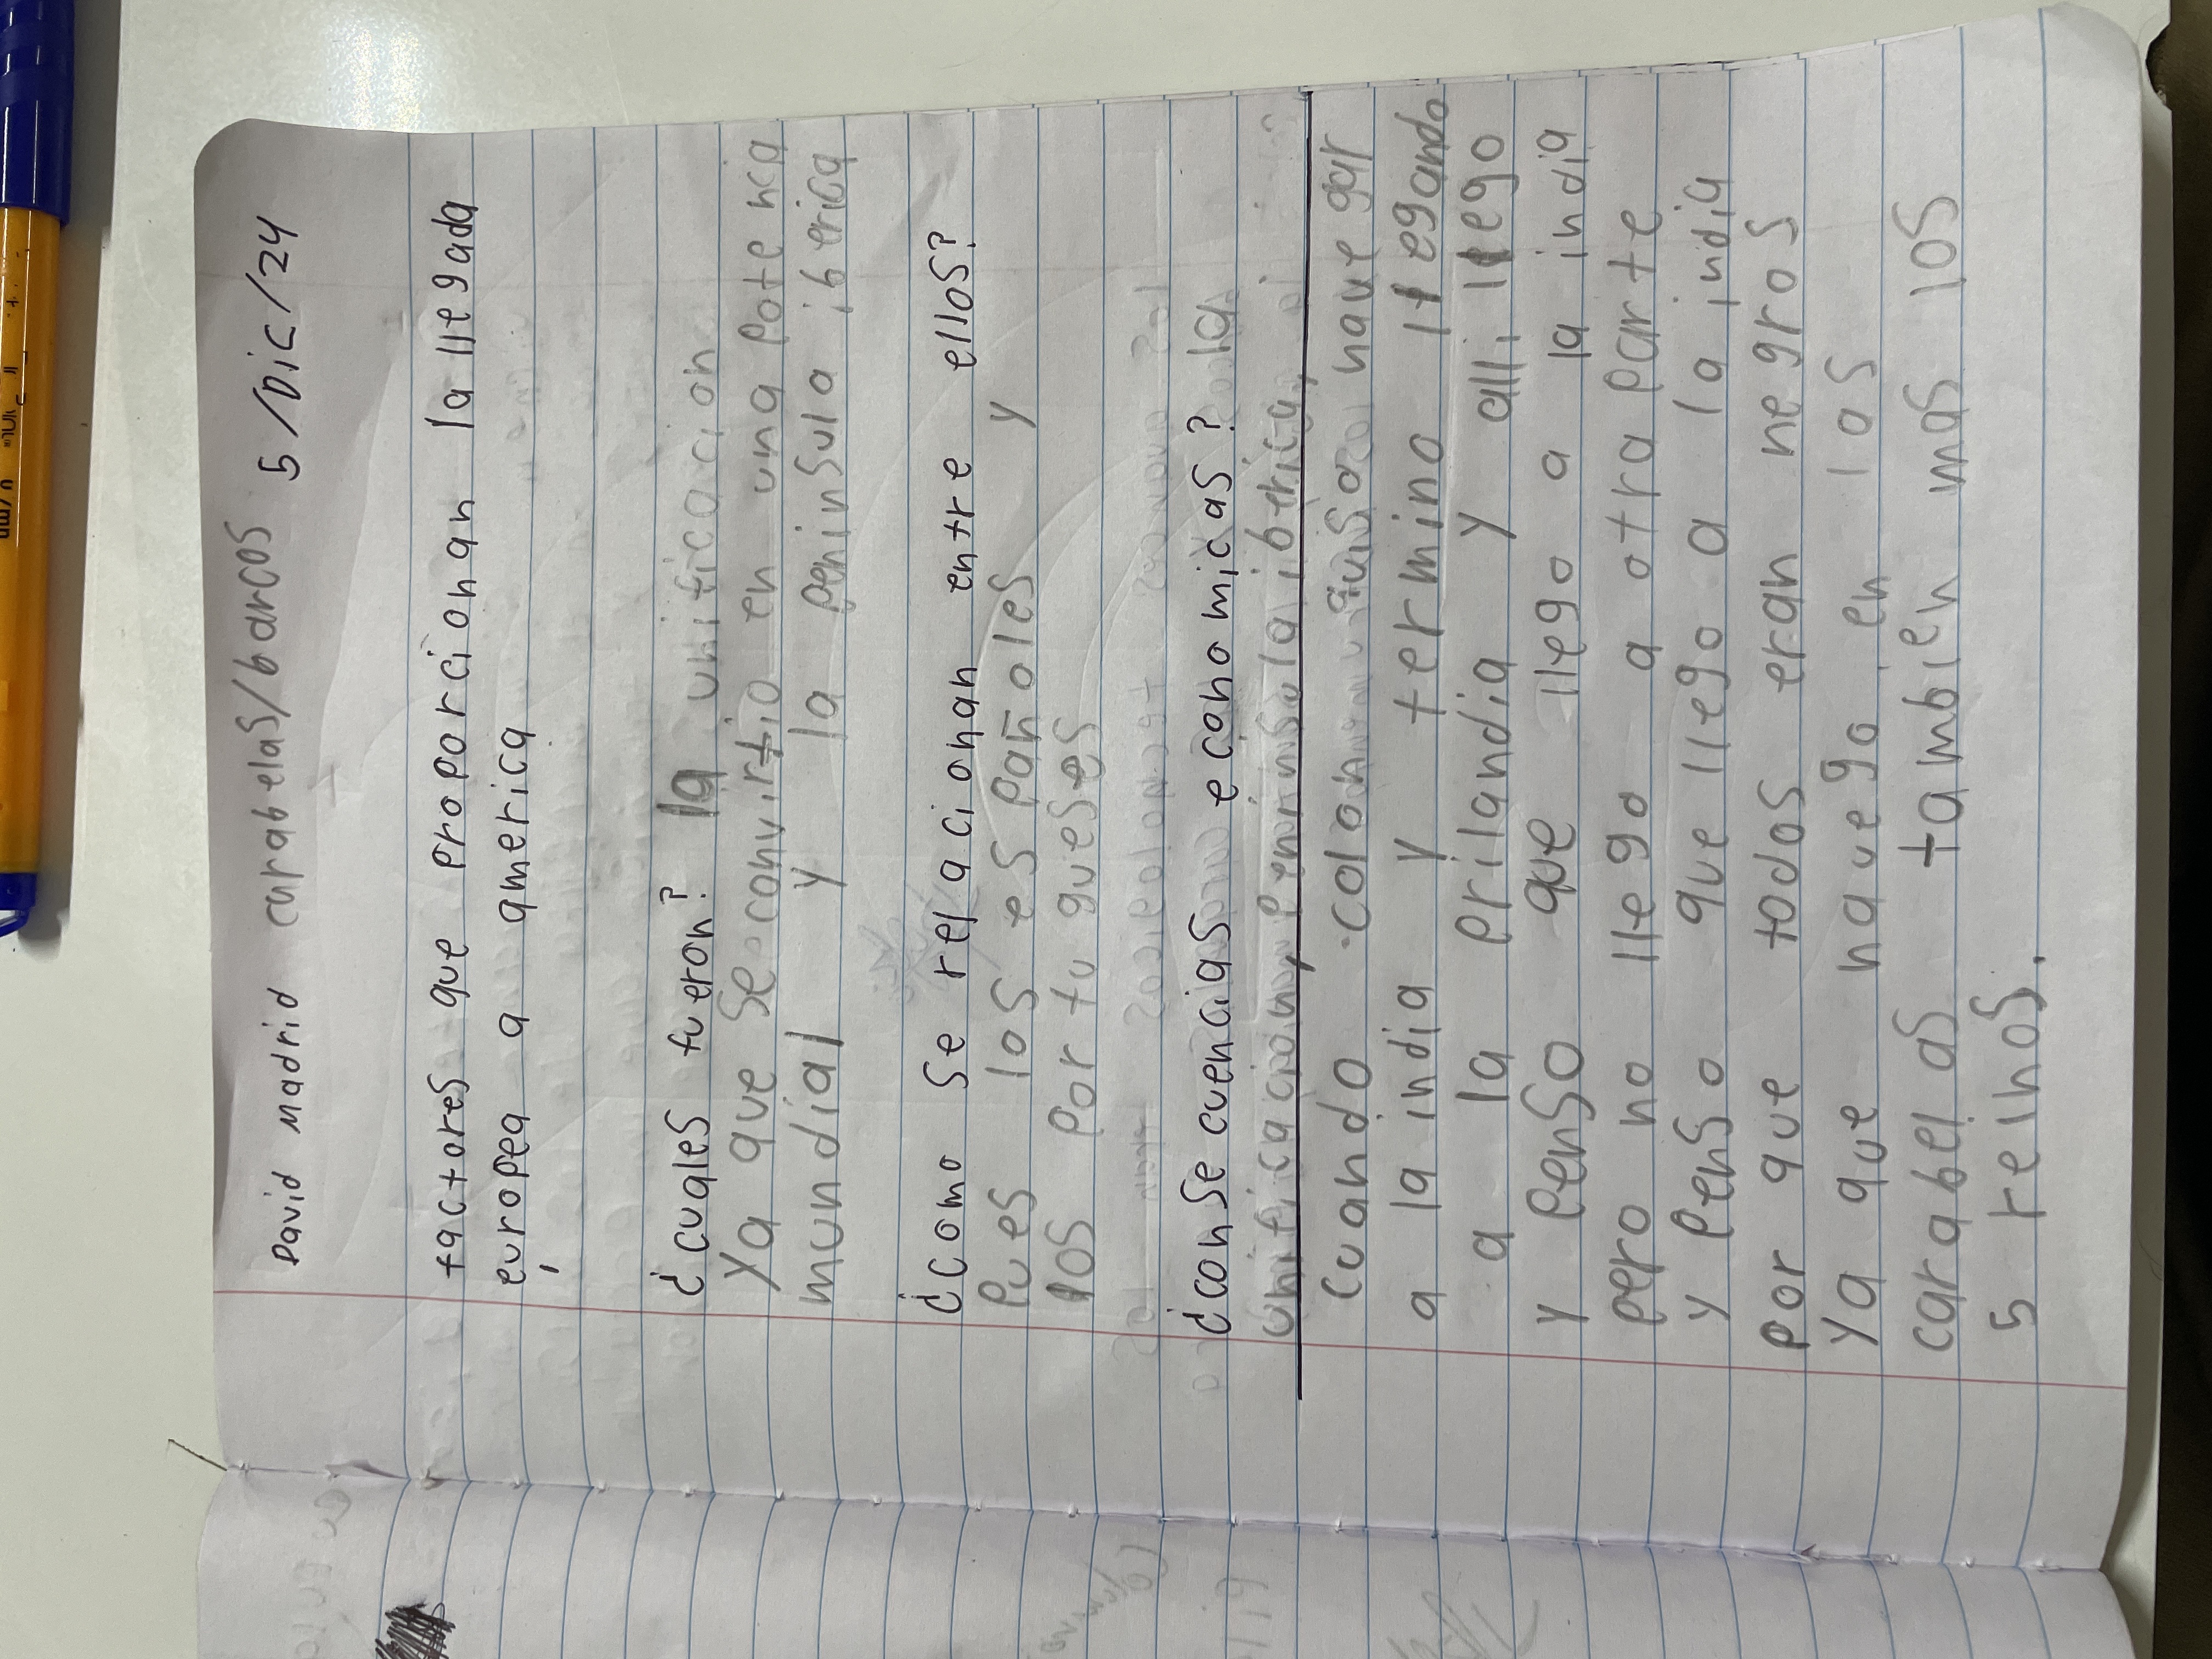 David madrid carabelas/barcos 5/Dic/24
factores que proporcionan la llegada
europea a america
¿cuales fueron? la unificacion
Ya que se convirtio en una potencia
mundial y la peninsula iberica
¿como se relacionan entre ellos?
Pues los españoles y
los portugueses
¿consecuencias economicas?
unificacion, peninsula iberica,
cuando colon quiso navegar
a la india y termino llegando
a la prilandia y alli llego
y penso que llego a la india
pero no llego a otra parte
y penso que llego a la india
por que todos eran negros
Ya que navego en las
carabelas tambien mas los
5 reinos.